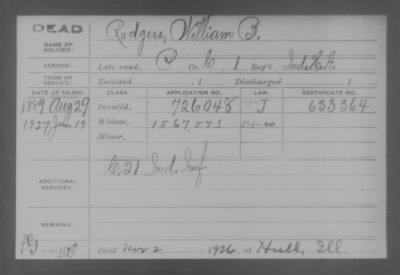 DEAD
NAME OF SOLDIER: Rodgers, William B.
SERVICE: Late rank, P Co. C, 1 Reg't Ind. H.A.
TERM OF SERVICE: Enlisted , 1 Discharged , 1
DATE OF FILING. CLASS. APPLICATION NO. LAW. CERTIFICATE NO.
1889 Aug 29 Invalid, 726048 J 633364
1927 Jan 19 Widow, 1567573 5-1-20
Minor,
C, 21 Ind. Inf
ADDITIONAL SERVICES:
REMARKS:
Died Nov 2, 1926, at Hull, Ill.